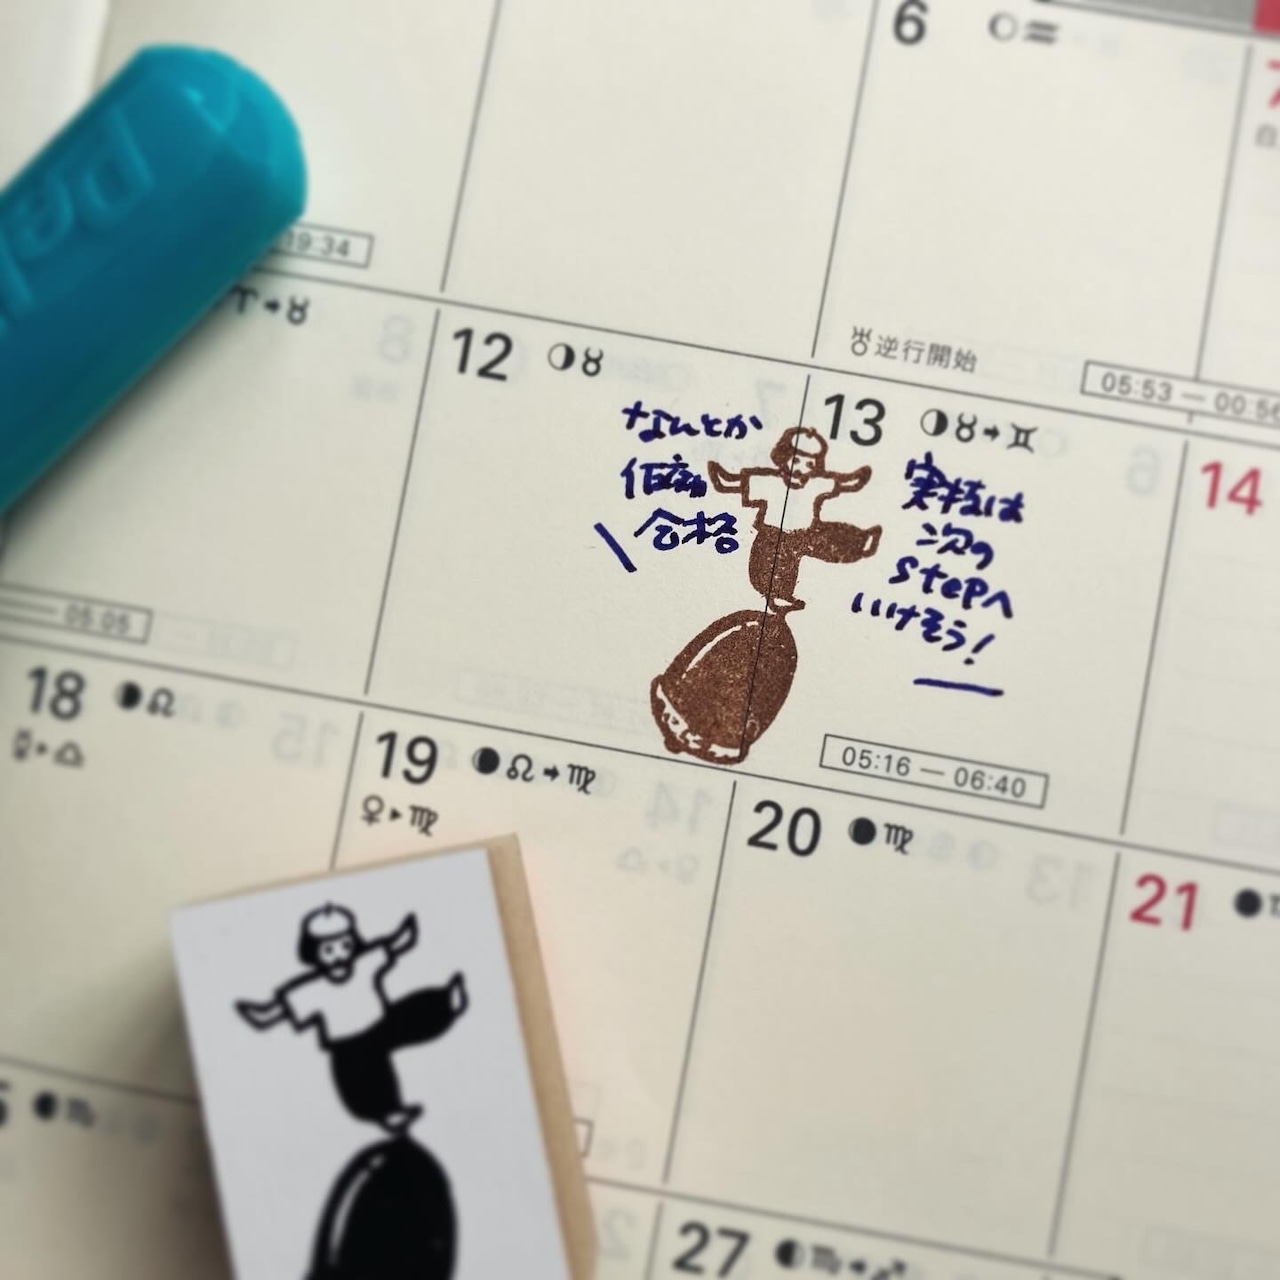 6 ☽♒
7
19:34
♅逆行開始
05:53 — 00:50
♈→♉
12 ☽♉
なんとか
仮免
合格
13 ☽♉→♊
実技は
次の
stepへ
いけそう!
14
05:05
05:16 — 06:40
18 ☽♌
☿▸♎
19 ☽♌→♍
♀▸♍
20 ☽♍
21
27 ☽♏→♐